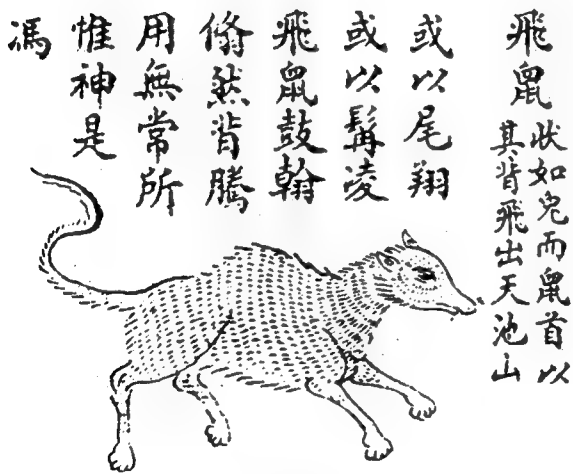 飛鼠
狀如兔而鼠首以
其背飛出天池山
或以尾翔
或以髯凌
飛鼠鼓翰
翛然背騰
用無常所
惟神是
馮